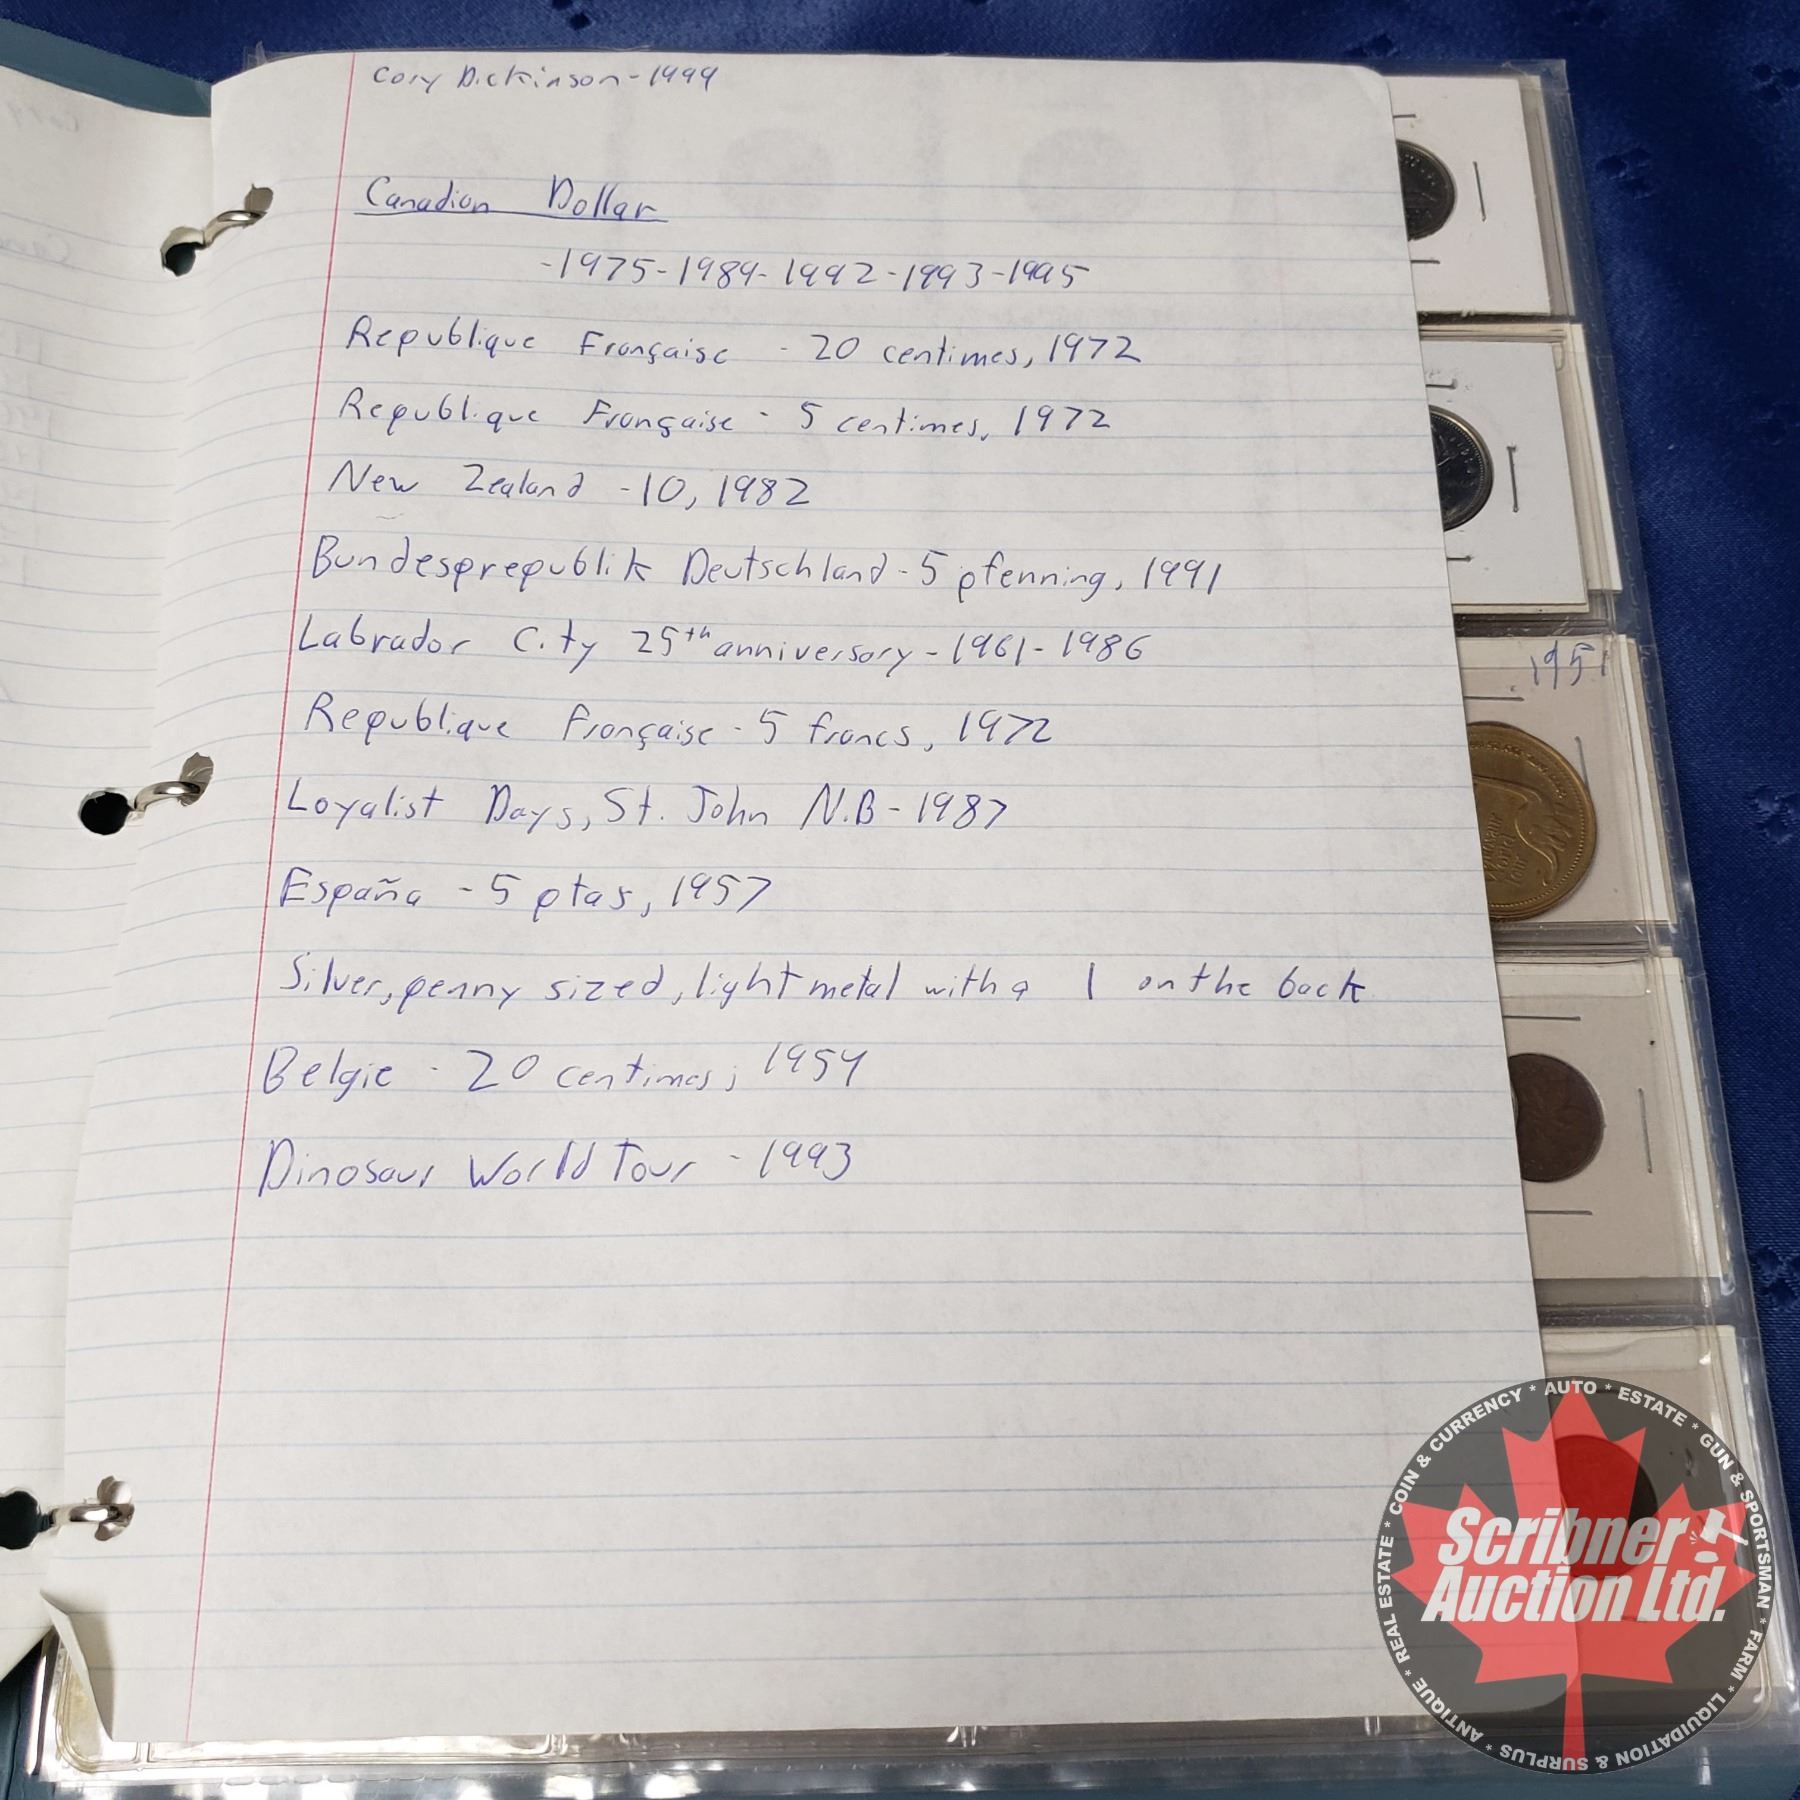 Cory Dickinson-1999
Canadian Dollar
-1975-1989-1992-1993-1995
Republique Française - 20 centimes, 1972
Republique Française - 5 centimes, 1972
New Zealand -10, 1982
Bundesprepublik Deutschland-5 pfenning, 1991
Labrador City 25th anniversary-1961-1986
Republique Française-5 francs, 1972
Loyalist Days, St. John N.B-1987
España -5 ptas, 1957
Silver, penny sized, light metal with a 1 on the back
Belgie - 20 centimes; 1954
Dinosaur World Tour - 1993
1951
Dinosaur
World
Tour
Scribner
Auction Ltd.
ANTIQUE * REAL ESTATE * COIN & CURRENCY * AUTO * ESTATE * GUN & SPORTSMAN * FARM * LIQUIDATION & SURPLUS *